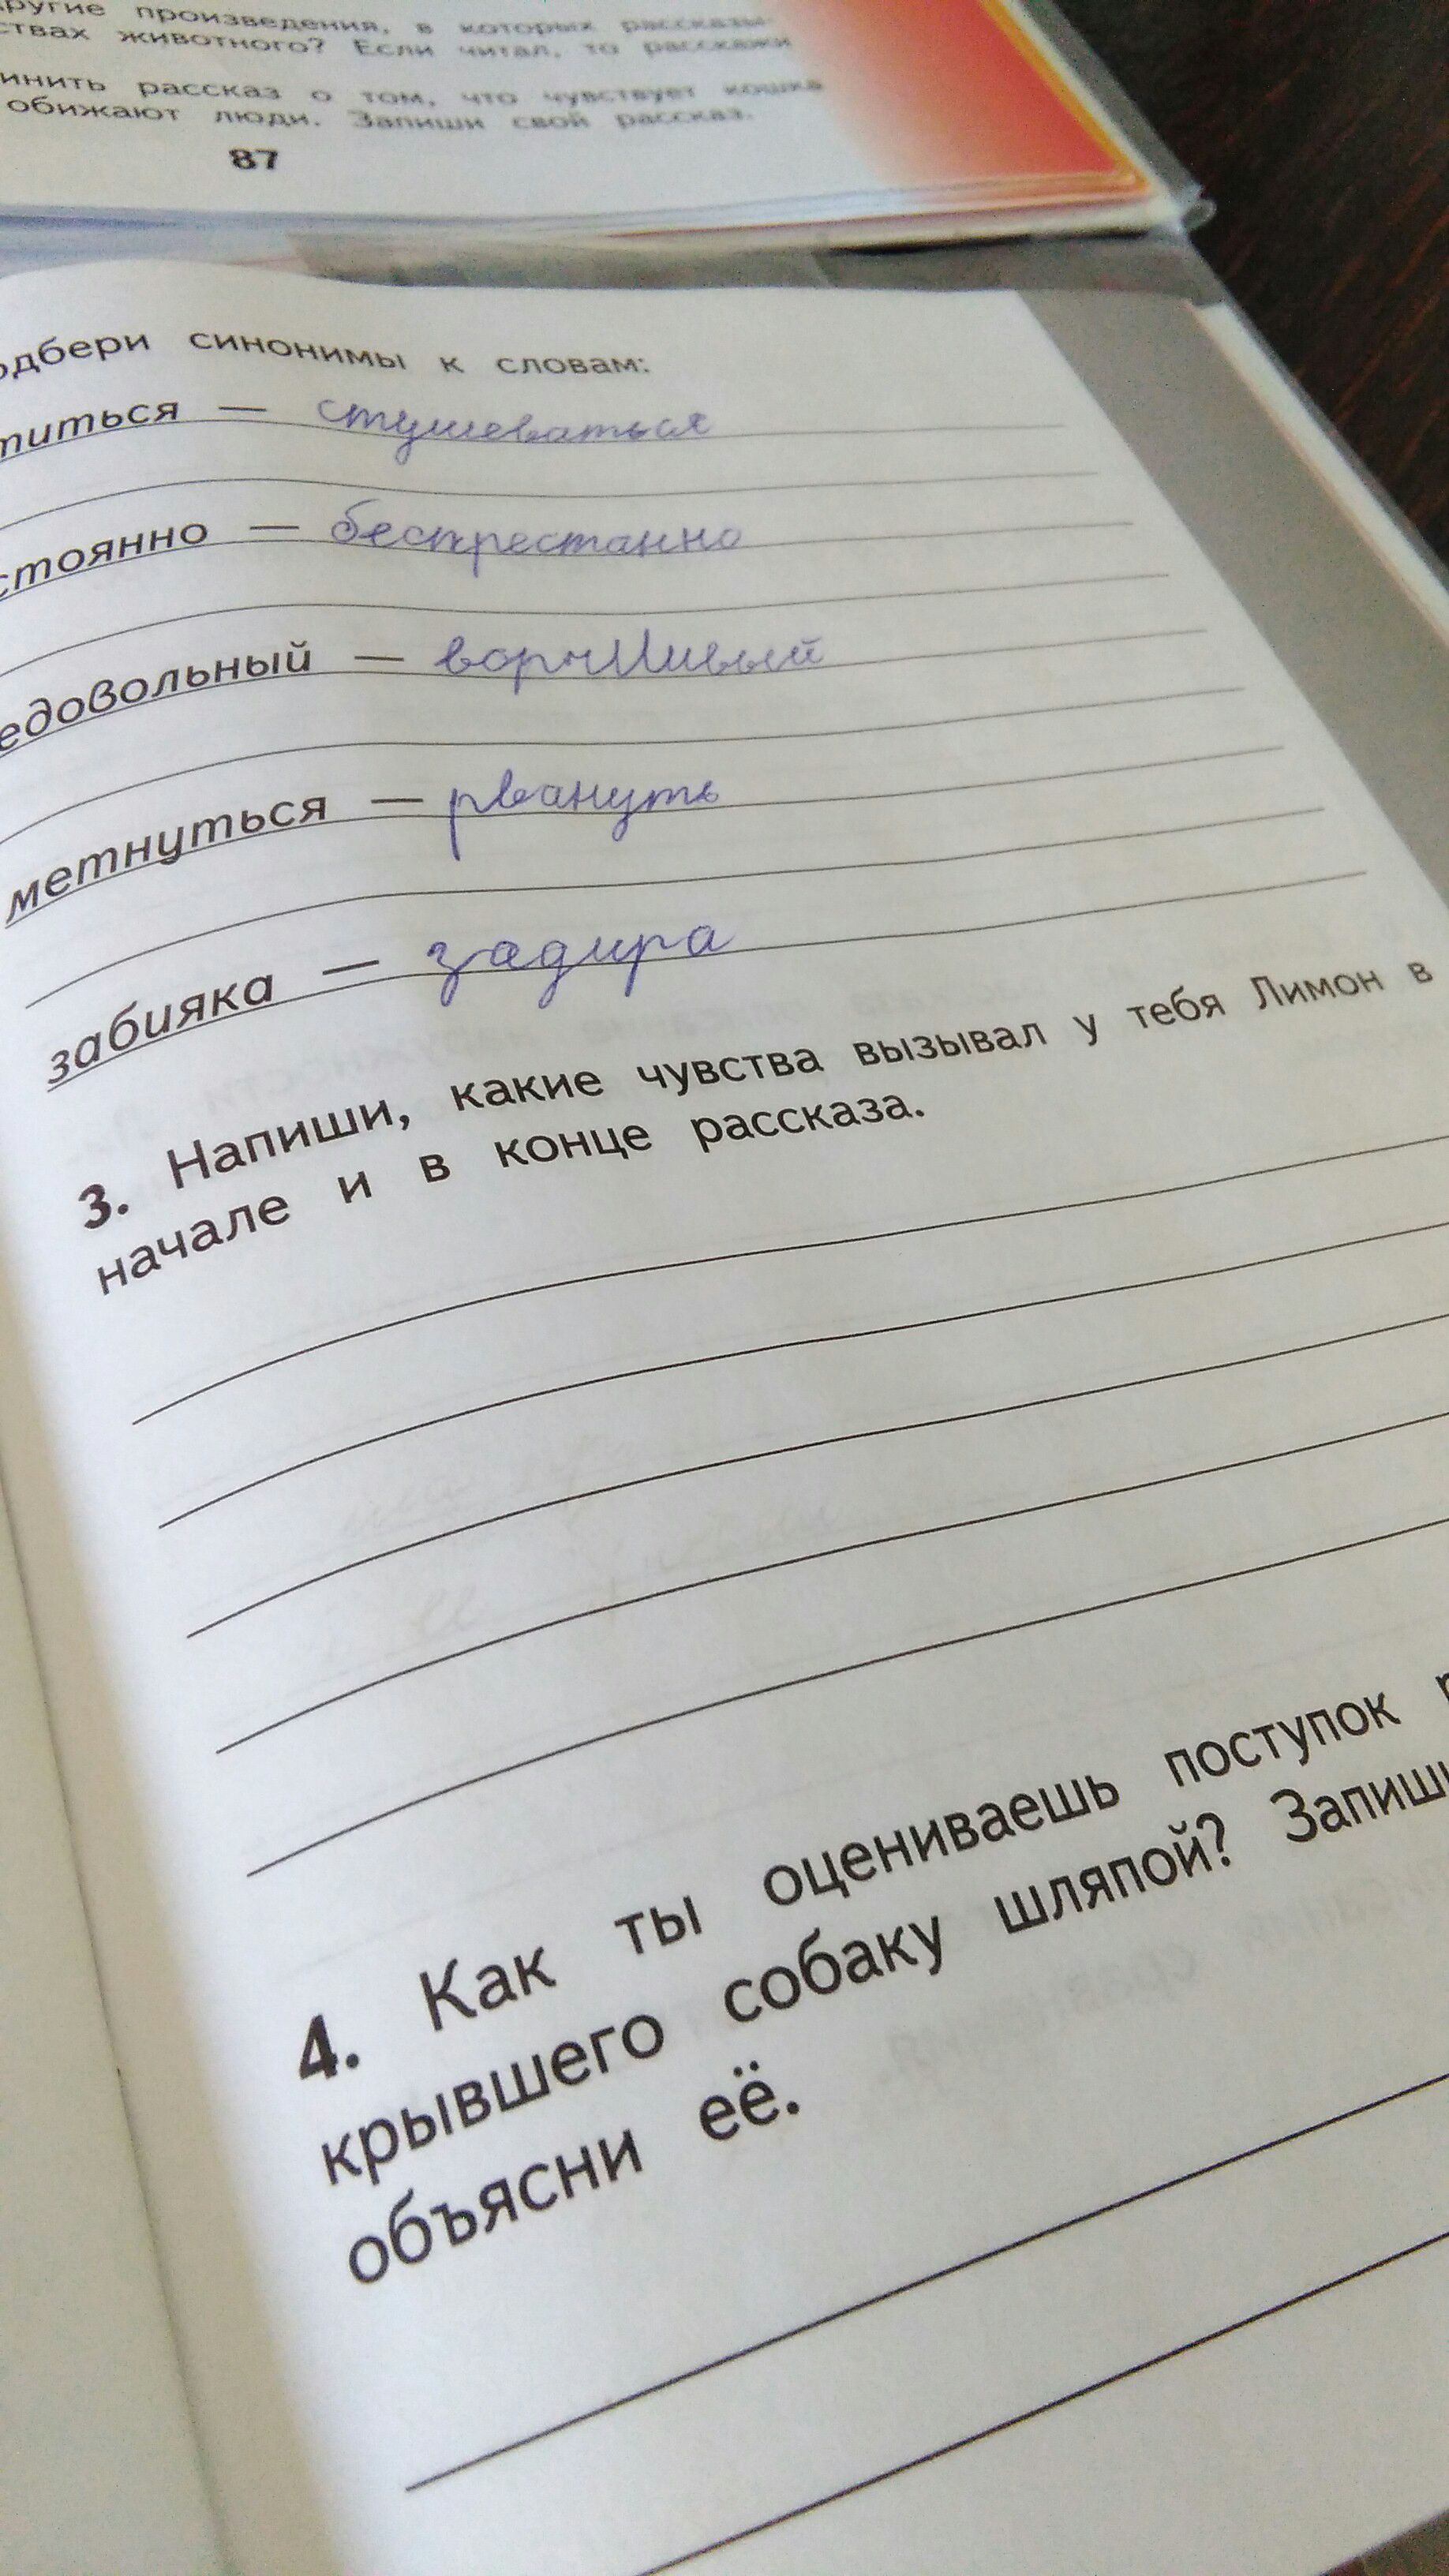 другие произведения, в которых рассказы-
ствах животного? Если читал, то расскажи
инить рассказ о том, что чувствует кошка
обижают люди. Запиши свой рассказ.
87
одбери синонимы к словам:
титься — стушеваться
стоянно — беспрестанно
едовольный — ворчливый
метнуться — рвануть
забияка — задира
3. Напиши, какие чувства вызывал у тебя Лимон в
начале и в конце рассказа.
4. Как ты оцениваешь поступок
крывшего собаку шляпой? Запиши
объясни её.